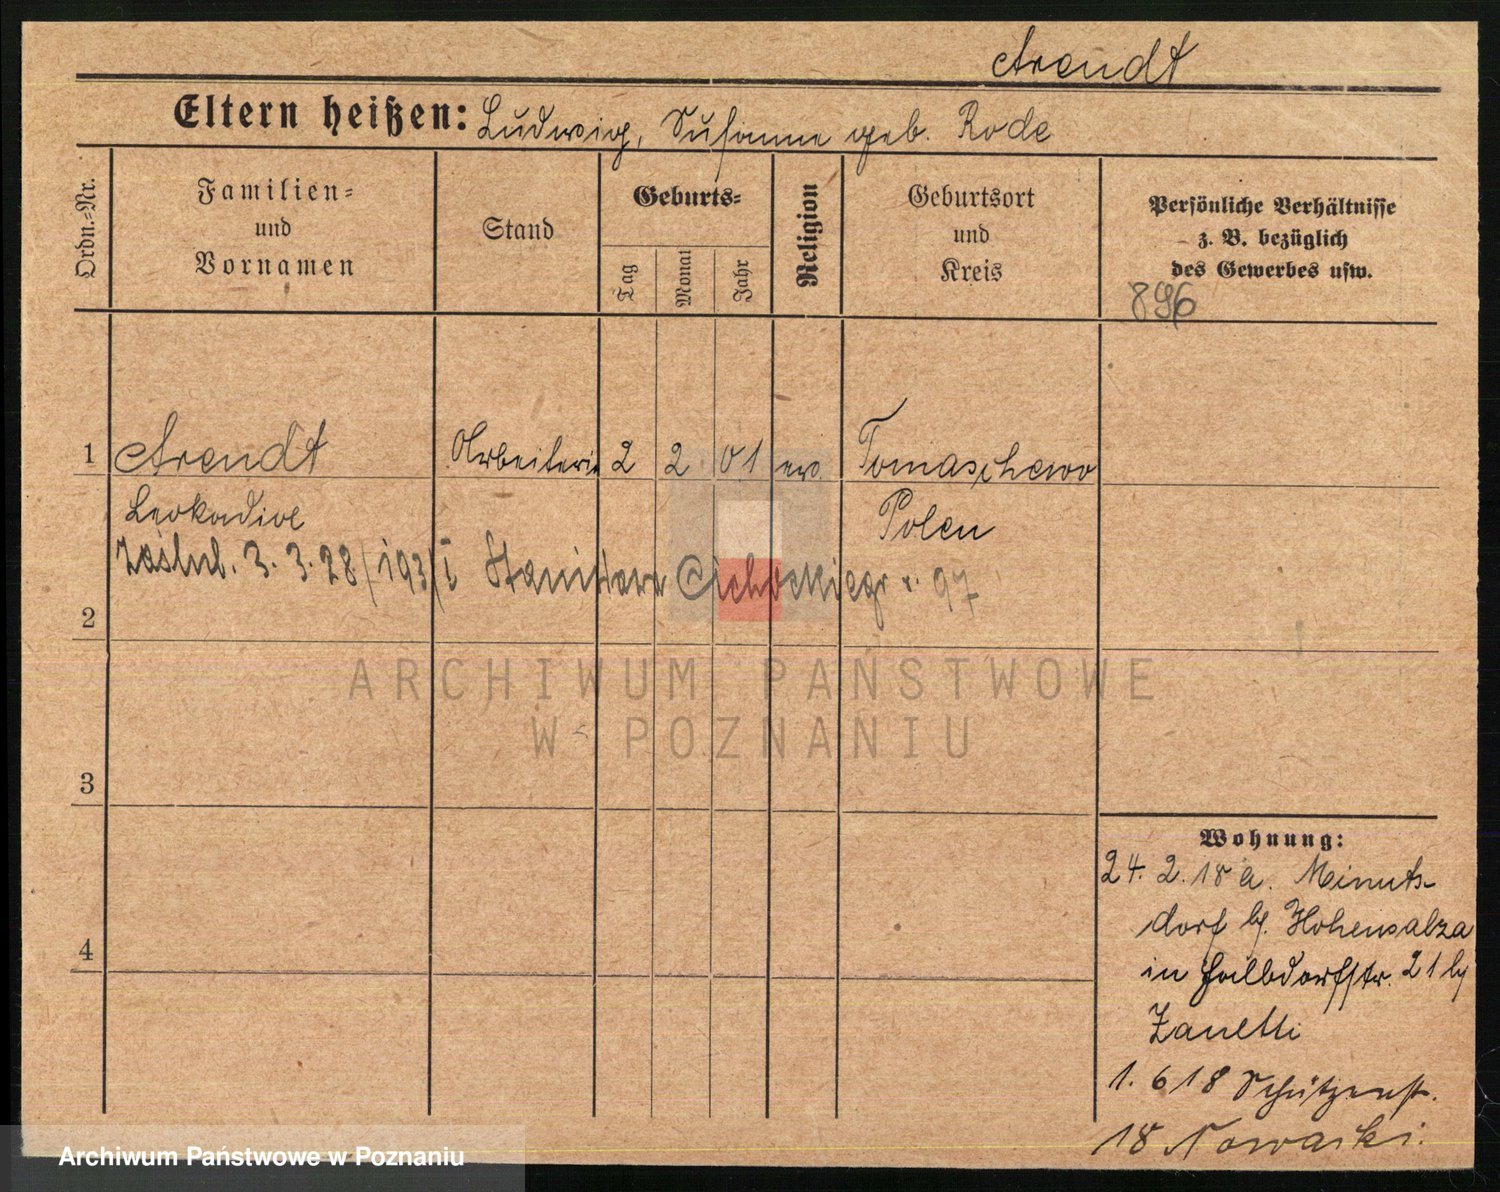 Arendt
Eltern heißen: Ludwig, Susanne geb. Rode
Ordn.=Nr.
Familien=
und
Vornamen
Stand
Geburts=
Tag
Monat
Jahr
Religion
Geburtsort
und
Kreis
Persönliche Verhältnisse
z. B. bezüglich
des Gewerbes usw.
896
1 Arendt Arbeiterin 2 2 01 ev. Tomaschewo
Leokadie Polen
zaślub. 3. 3. 28/193/I Stanisław Cichockiego 97
2
ARCHIWUM PAŃSTWOWE
W POZNANIU
3
4
Wohnung:
24. 2. 18 a. Minuts-
dorf b/ Hohensalza
in 21 b/
Zanetti
1. 6 18 Schützenst.
18 Nowacki.
Archiwum Państwowe w Poznaniu